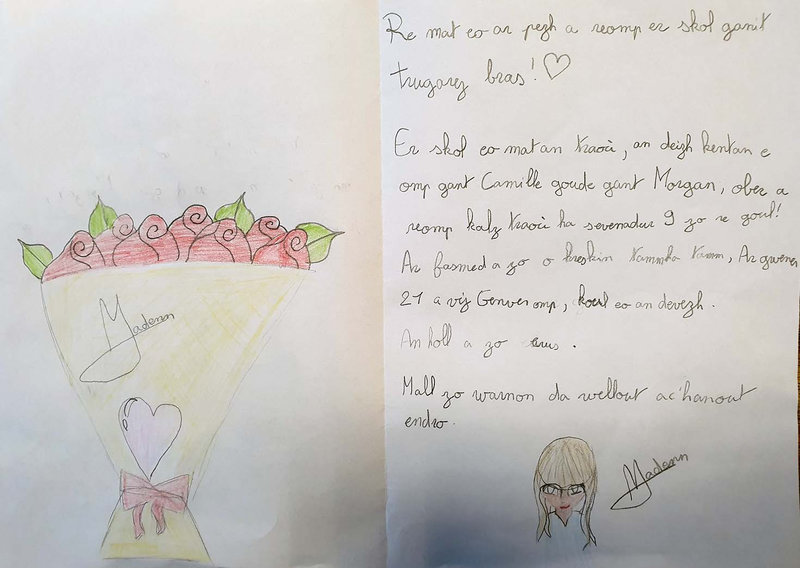 Madenn
Re mat eo ar pezh a reomp er skol ganit
trugarez bras! ♡
Er skol eo mat an traoù, an deizh kentan e
omp gant Camille goude gant Morgan, ober a
reomp kalz traoù ha sevenadur 9 zo re goul!
Ar fasmed a zo o kreskin tammha tamm, Ar gwener
21 a viz Genver omp, koul eo an devezh.
An holl a zo
Mall zo warnon da wellout ac'hanout
endro.
Madenn